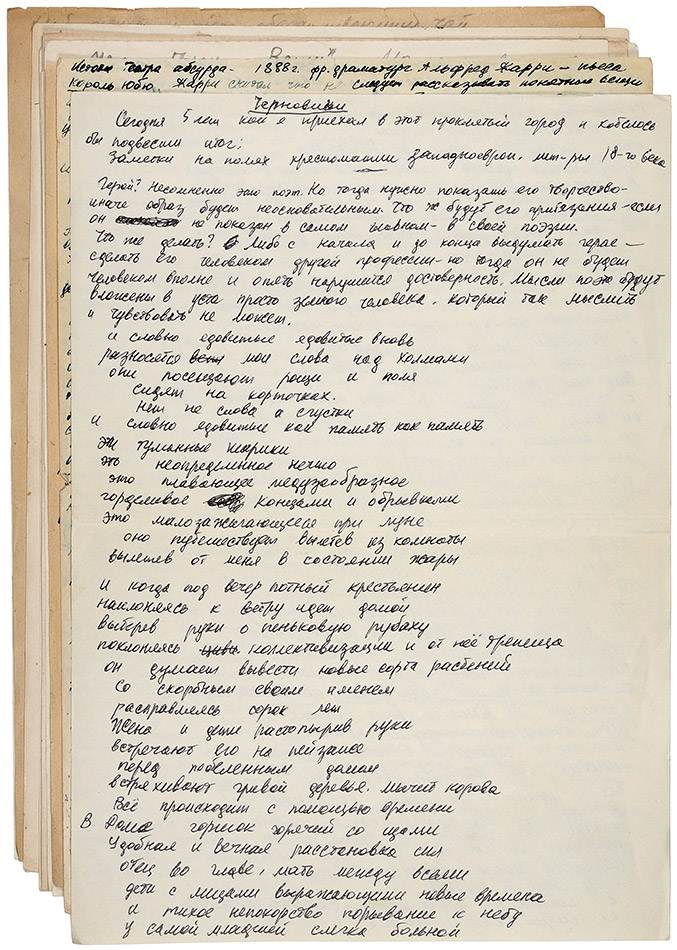 Истоки театра абсурда - 1888г. фр. драматург Альфред Жарри - пьеса
Король Юбю. Жарри считал что не следует рассказывать понятные вещи
Черновики
Сегодня 5 лет как я приехал в этот проклятый город и хотелось
бы подвести итог:
Заметки на полях хрестоматии западноевроп. лит-ры 18-го века
Герой? Несомненно это поэт. Но тогда нужно показать его творчество-
иначе образ будет неосновательным. Что ж будут его притязания - если
он не показан в самом главном - в своей поэзии.
Что же делать? Либо с начала и до конца выдумать героя -
сделать его человеком другой профессии - но тогда он не будет
человеком вполне и опять нарушится достоверность. Мысли поэта будут
вложены в уста просто земного человека, который так мыслить
и чувствовать не может.
и словно ядовитые ядовитые вновь
разносятся мои слова над холмами
они посещают рощи и поля
сидят на корточках.
Нет не слова а сгустки
и словно ядовитые как память как память
эти туманные шарики
это неопределенное нечто
это плавающее медузообразное
горделивое концами и обрывками
это малозажигающееся при луне
оно путешествуя вылетев из комнаты
вылетев от меня в состоянии жары
И когда под вечер потный крестьянин
наклоняясь к ветру идет домой
вытерев руки о пеньковую рубаху
поклоняясь коллективизации и от неё трепеща
он думает вывести новые сорта растений
Со скорбным своим именем
расправляясь сорок лет
Жена и дети растопырив руки
встречают его на пейзаже
перед поваленным домом
встряхивают гривой деревья. мычит корова
Всё происходит с помощью времени
В доме горшок горячий со щами
Удобная и вечная расстановка сил
отец во главе, мать между всеми
дети с лицами выражающими новые времена
и тихое непокорство порывание к небу
у самой младшей слегка больной